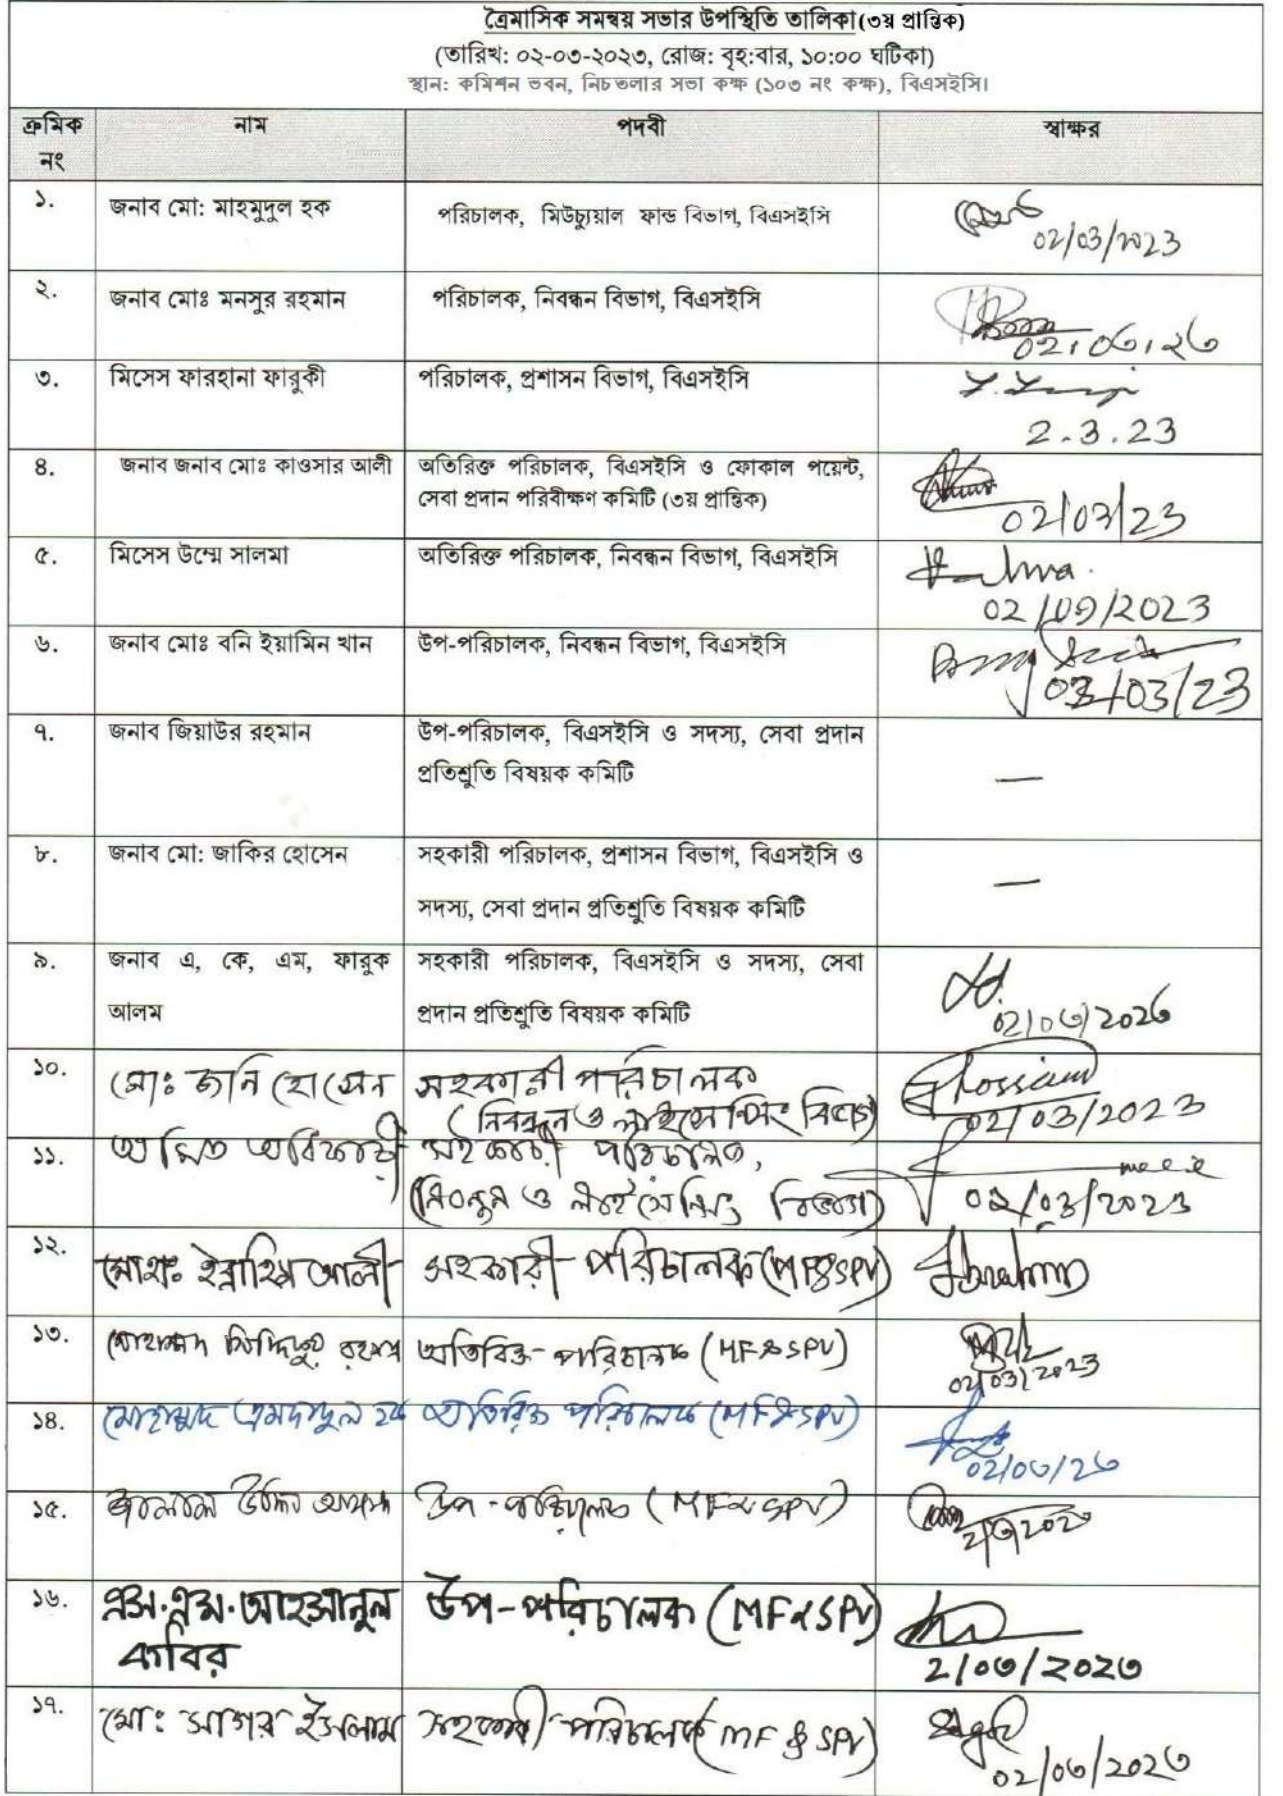 ত্রৈমাসিক সমন্বয় সভার উপস্থিতি তালিকা(৩য় প্রান্তিক)
(তারিখ: ০২-০৩-২০২৩, রোজ: বৃহ:বার, ১০:০০ ঘটিকা)
স্থান: কমিশন ভবন, নিচতলার সভা কক্ষ (১০৩ নং কক্ষ), বিএসইসি।
ক্রমিক নং নাম পদবী স্বাক্ষর
১. জনাব মো: মাহমুদুল হক পরিচালক, মিউচ্যুয়াল ফান্ড বিভাগ, বিএসইসি
02/03/2023
২. জনাব মোঃ মনসুর রহমান পরিচালক, নিবন্ধন বিভাগ, বিএসইসি
০২.০৩.২৩
৩. মিসেস ফারহানা ফারুকী পরিচালক, প্রশাসন বিভাগ, বিএসইসি
2.3.23
৪. জনাব জনাব মোঃ কাওসার আলী অতিরিক্ত পরিচালক, বিএসইসি ও ফোকাল পয়েন্ট,
সেবা প্রদান পরিবীক্ষণ কমিটি (৩য় প্রান্তিক)
02/03/23
৫. মিসেস উম্মে সালমা অতিরিক্ত পরিচালক, নিবন্ধন বিভাগ, বিএসইসি
02/03/2023
৬. জনাব মোঃ বনি ইয়ামিন খান উপ-পরিচালক, নিবন্ধন বিভাগ, বিএসইসি
02/03/23
৭. জনাব জিয়াউর রহমান উপ-পরিচালক, বিএসইসি ও সদস্য, সেবা প্রদান
প্রতিশ্রুতি বিষয়ক কমিটি —
৮. জনাব মো: জাকির হোসেন সহকারী পরিচালক, প্রশাসন বিভাগ, বিএসইসি ও
সদস্য, সেবা প্রদান প্রতিশ্রুতি বিষয়ক কমিটি —
৯. জনাব এ, কে, এম, ফারুক সহকারী পরিচালক, বিএসইসি ও সদস্য, সেবা
আলম প্রদান প্রতিশ্রুতি বিষয়ক কমিটি
02/০৩/202৩
১০. মোঃ জনি হোসেন সহকারী পরিচালক
(নিবন্ধন ও লাইসেন্সিং বিভাগ) Hossain
02/03/2023
১১. অমিত অধিকারী সহকারী পরিচালক,
(নিবন্ধন ও লাইসেন্সিং বিভাগ) 02/03/2023
১২. মোহাঃ ইব্রাহিম আলী সহকারী পরিচালক (MF&SPV) Ibrahim
১৩. মোহাম্মদ সিদ্দিকুর রহমান অতিরিক্ত পরিচালক (MF&SPV)
02/03/2023
১৪. মোহাম্মদ এমদাদুল হক অতিরিক্ত পরিচালক (MF&SPV)
02/০৩/2৩
১৫. উপ-পরিচালক (MF&SPV)
2/৩/202৩
১৬. এস.এম.আহসানুল উপ-পরিচালক (MF&SPV)
কবির
2/০৩/202৩
১৭. মো: সাগর ইসলাম সহকারী পরিচালক (MF & SPV)
02/০৩/202৩